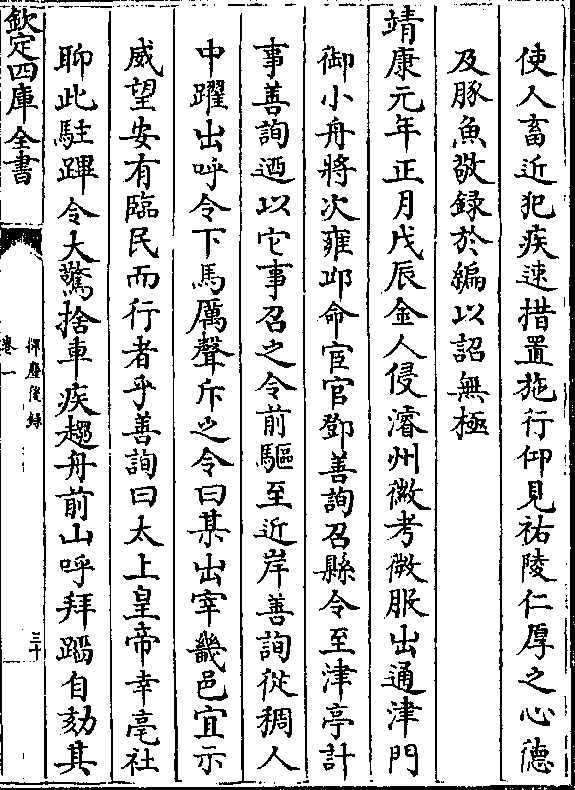 使人畜近犯疾速措置施行仰見祐陵仁厚之心德
及豚魚敬録於編以詔無極
靖康元年正月戊辰金人侵濬州徽考微服出通津門
御小舟將次雍邱命宦官鄧善詢召縣令至津亭計
事善詢迺以它事召之令前驅至近岸善詢從稠人
中躍出呼令下馬厲聲斥之令曰某出宰畿邑宜示
威望安有臨民而行者乎善詢曰太上皇帝幸亳社
聊此駐蹕令大驚捨車疾趨舟前山呼拜蹈自劾其
欽定四庫全書
揮麈後録
卷一
三十